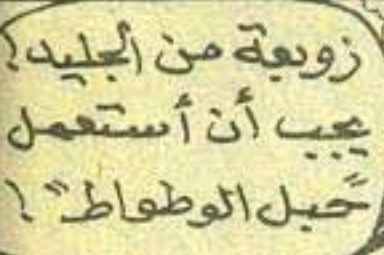 زوبعة من الجليد!
يجب أن أستعمل
"حبل الوطواط"!